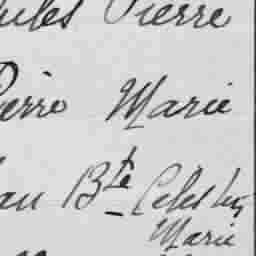 Jules Pierre
Pierre Marie
Jean Bte Célestin
Marie